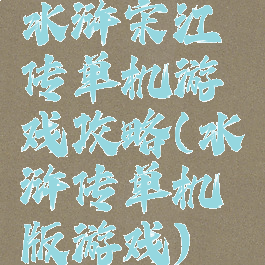 水浒宋江
传单机游
戏攻略(水
浒传单机
版游戏)